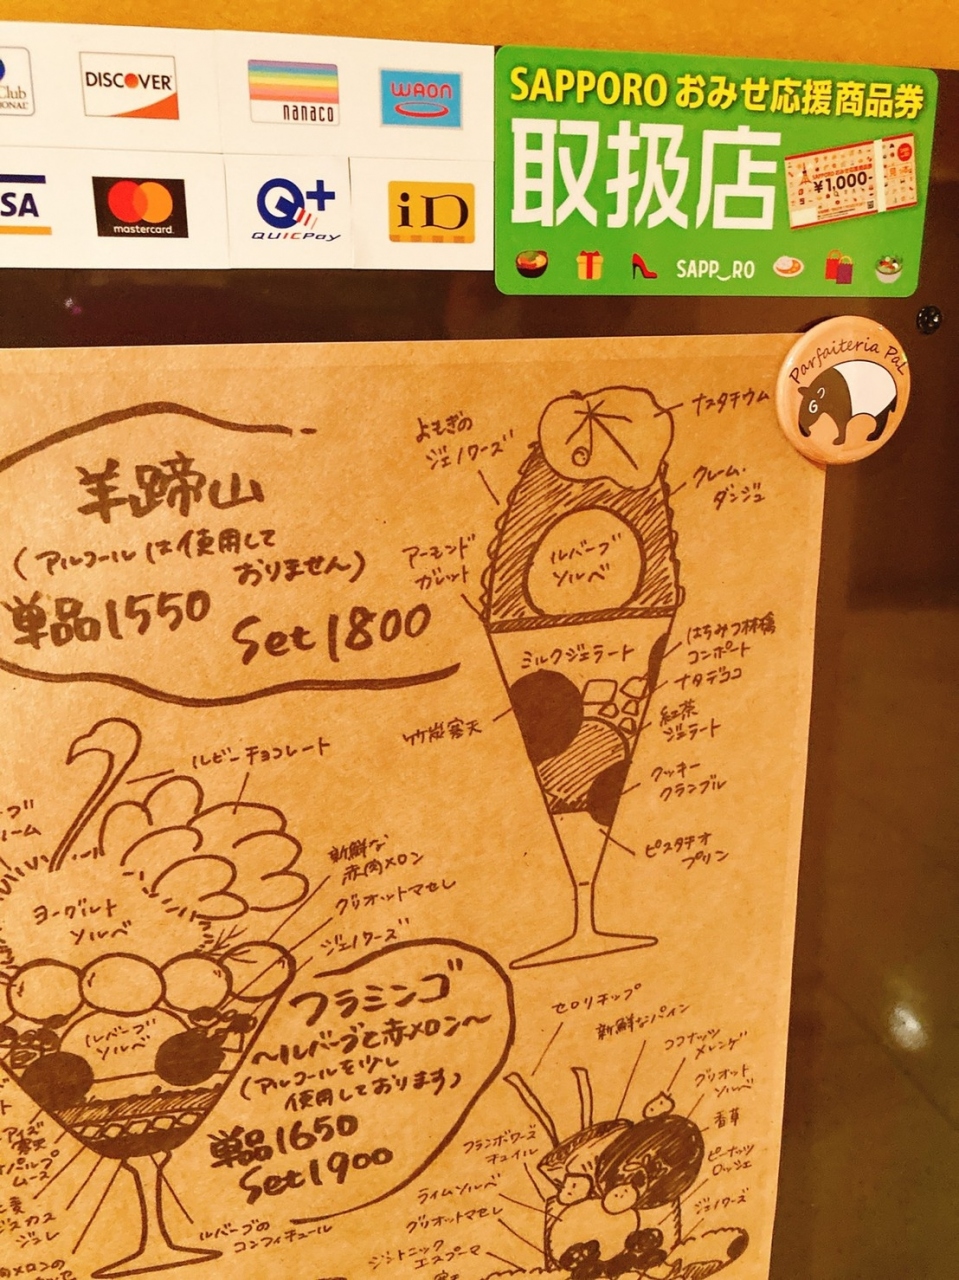 Club
DISCOVER
nanaco
WAON
SAPPORO おみせ応援商品券
取扱店
¥1,000-
SAPP_RO
SA
mastercard.
Q+
QUICPay
iD
Parfaiteria PaL
羊蹄山
(アルコールは使用して
おりません)
単品1550
Set 1800
よもぎの
ジェノワーズ
ナスタチウム
クレーム・
ダンジュ
アーモンド
ガレット
ルバーブ
ソルベ
はちみつ林檎
コンポート
ミルクジェラート
ナタデココ
紅茶
ジェラート
竹炭寒天
クッキー
クランブル
ピスタチオ
プリン
ルビーチョコレート
ヨーグルト
ソルベ
新鮮な
赤肉メロン
グリオットマセレ
ジェノワーズ
ルバーブ
ソルベ
フラミンゴ
〜ルバーブと赤メロン〜
(アルコールを少し
使用しております)
単品1650
Set 1900
ルバーブの
コンフィチュール
セロリチップ
新鮮なパイン
ココナッツ
メレンゲ
グリオット
ソルベ
香草
フランボワーズ
チュイル
ピーナッツ
ロッシェ
ライムソルベ
ジェノワーズ
グリオットマセレ
ジントニック
エスプーマ